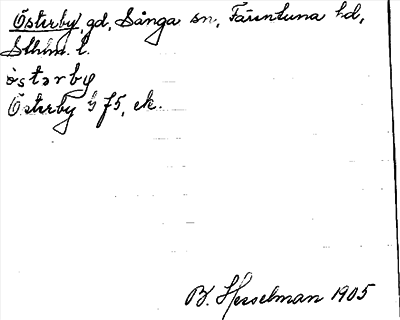 Österby, gd, Sånga sn, Färentuna hd,
Sthlm. l.
östərby
Österby J f5, ek.
B. Hesselman 1905